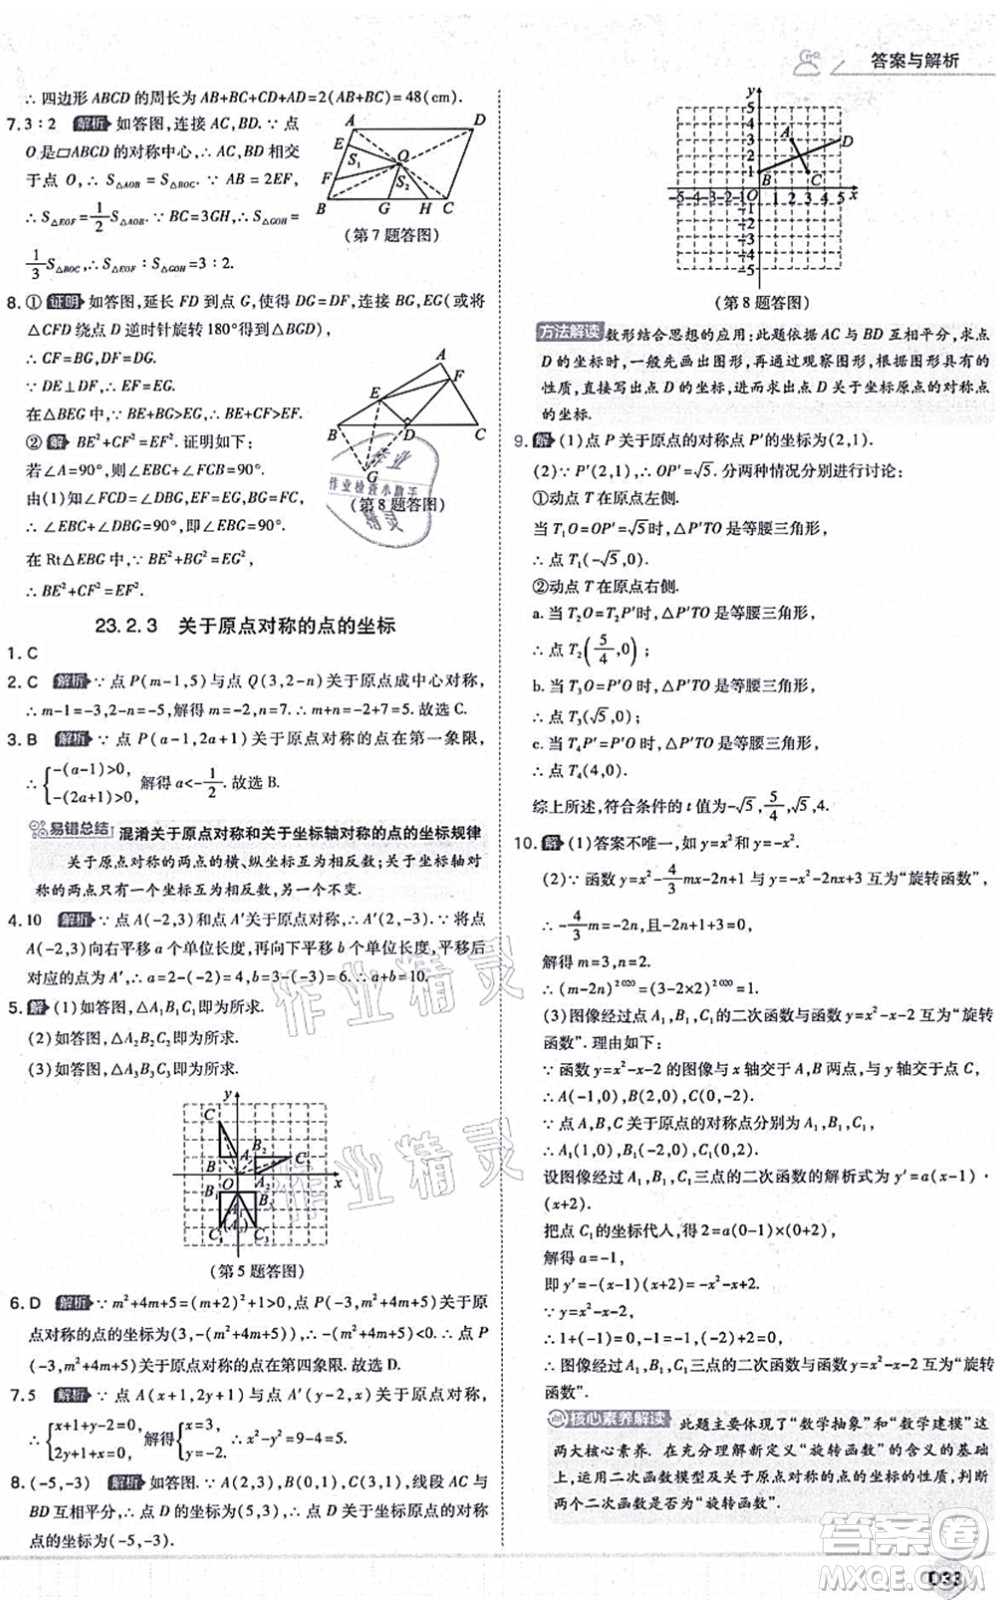 答案与解析
∴四边形ABCD的周长为AB+BC+CD+AD=2(AB+BC)=48(cm).
7.3∶2 解析 如答图,连接AC,BD.∵点
O是▱ABCD的对称中心,∴AC,BD相交
于点O,∴S△AOB=S△BOC.∵AB=2EF,
∴S△EOF=1/2 S△AOB.∵BC=3GH,∴S△GOH=
1/3 S△BOC,∴S△EOF∶S△GOH=3∶2.
A
D
E
S₁
O
F
S₂
B
G
H
C
(第7题答图)
8.①证明 如答图,延长FD到点G,使得DG=DF,连接BG,EG(或将
△CFD绕点D逆时针旋转180°得到△BGD),
∴CF=BG,DF=DG.
∵DE⊥DF,∴EF=EG.
在△BEG中,BE+BG>EG,即BE+CF>EF.
②解 BE²+CF²=EF².证明如下:
若∠A=90°,则∠EBC+∠FCB=90°.
由(1)知∠FCD=∠DBG,EF=EG,
∴∠EBC+∠DBG=90°,即∠EBG=90°.
在Rt△EBG中,∵BE²+BG²=EG²,
∴BE²+CF²=EF².
A
E
F
B
D
C
G
(第8题答图)
23.2.3 关于原点对称的点的坐标
1.C
2.C 解析 ∵点P(m-1,5)与点Q(3,2-n)关于原点成中心对称,
∴m-1=-3,2-n=-5,解得m=-2,n=7.∴m+n=-2+7=5.故选C.
3.B 解析 ∵点P(a-1,2a+1)关于原点对称的点在第一象限,
∴{-(a-1)>0,
-(2a+1)>0, 解得a<-1/2.故选B.
易错总结 混淆关于原点对称和关于坐标轴对称的点的坐标规律
关于原点对称的两点的横、纵坐标互为相反数;关于坐标轴对
称的两点只有一个坐标互为相反数,另一个不变.
4.10 解析 ∵点A(-2,3)和点A′关于原点对称,∴A′(2,-3).∵将点
A(-2,3)向右平移a个单位长度,再向下平移b个单位长度,平移后
对应的点为A′,∴a=2-(-2)=4,b=3-(-3)=6.∴a+b=10.
5.解 (1)如答图,△A₁B₁C₁即为所求.
(2)如答图,△A₂B₂C₂即为所求.
(3)如答图,△A₃B₃C₃即为所求.
(第5题答图)
6.D 解析 ∵m²+4m+5=(m+2)²+1>0,∴点P(-3,m²+4m+5)关于原
点对称的点的坐标为(3,-(m²+4m+5)),∴-(m²+4m+5)<0.∴点P
(-3,m²+4m+5)关于原点对称的点在第四象限.故选D.
7.5 解析 ∵点A(x+1,2y+1)与点A′(y-2,x)关于原点对称,
∴{x+1+y-2=0,
2y+1+x=0, 解得{x=3,
y=-2, ∴x²-y²=9-4=5.
8.(-5,-3) 解析 如答图.∵A(2,3),B(0,1),C(3,1),线段AC与
BD互相平分,∴点D的坐标为(5,3),∴点D关于原点的对称
点的坐标为(-5,-3).
y
5
4
3
2
1
A
D
B
C
-5-4-3-2-1 O 1 2 3 4 5 x
-1
-2
-3
-4
-5
(第8题答图)
方法解读 数形结合思想的应用:此题依据AC与BD互相平分,求点
D的坐标时,一般先画出图形,再通过观察图形,根据图形具有的
性质,直接写出点D的坐标,进而求出点D关于坐标原点的对称点
的坐标.
9.解 (1)点P关于原点的对称点P′的坐标为(2,1).
(2)∵P′(2,1),∴OP′=√5.分两种情况分别进行讨论:
①动点T在原点左侧.
当T₁O=OP′=√5时,△P′TO是等腰三角形,
∴点T₁(-√5,0).
②动点T在原点右侧.
a.当T₂O=T₂P′时,△P′TO是等腰三角形,
∴点T₂(5/4,0);
b.当T₃O=P′O时,△P′TO是等腰三角形,
∴点T₃(√5,0);
c.当T₄P′=P′O时,△P′TO是等腰三角形,
∴点T₄(4,0).
综上所述,符合条件的t值为-√5,5/4,√5,4.
10.解 (1)答案不唯一,如y=x²和y=-x².
(2)∵函数y=x²-4/3mx-2n+1与y=-x²+nx-1互为“旋转函数”,
∴-4/3m=-2n,且-n=-2,
解得m=3,n=2.
∴(m-2n)²⁰²⁰=(3-2×2)²⁰²⁰=1.
(3)图像经过点A₁,B₁,C₁的二次函数与函数y=x²-x-2互为“旋转
函数”.理由如下:
∵函数y=x²-x-2的图像与x轴交于A,B两点,与y轴交于点C,
∴A(-1,0),B(2,0),C(0,-2).
∵点A,B,C关于原点的对称点分别为A₁,B₁,C₁,
∴A₁(1,0),B₁(-2,0),C₁(0,2).
设图像经过A₁,B₁,C₁三点的二次函数的解析式为y′=a(x-1)·
(x+2).
把点C₁的坐标代人,得2=a(0-1)×(0+2),
解得a=-1,
即y′=-(x-1)(x+2)=-x²-x+2.
∵y=x²-x-2,
∴1+(-1)=0,-1=-1,-2+2=0,
∴图像经过A₁,B₁,C₁三点的二次函数与函数y=x²-x-2互为“旋转
函数”.
核心素养解读 此题主要体现了“数学抽象”和“数学建模”这
两大核心素养.在充分理解新定义“旋转函数”的含义的基础
上,运用二次函数模型及关于原点对称的点的坐标的性质,判断
两个二次函数是否为“旋转函数”.
D33
作业精灵
作业精灵
作业检查小助手
答案卷
MXQE.COM